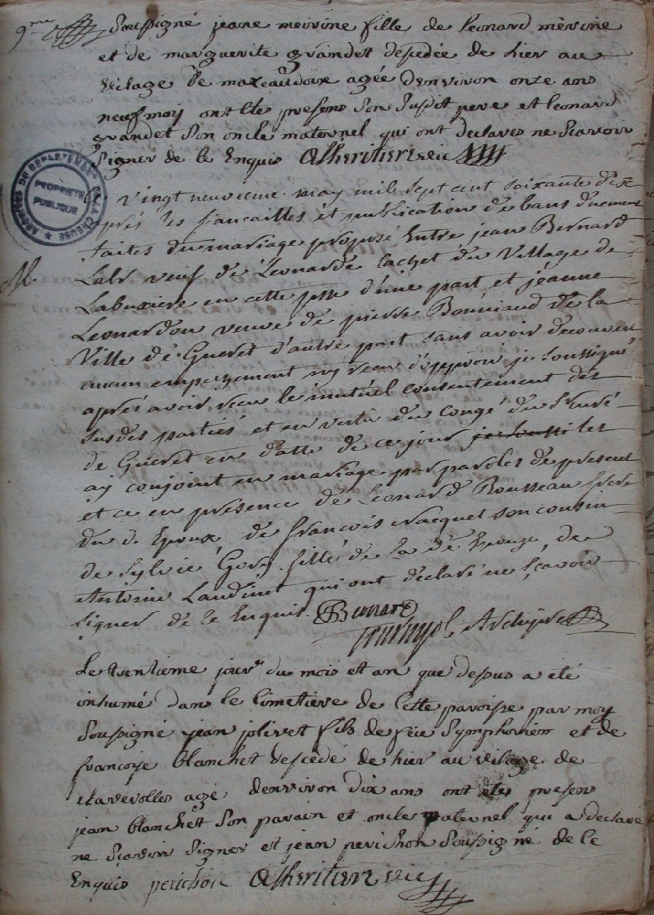 9me
soussigné jeane meirine fille de Leonard mérine
et de marguerite grandet decedée de hier au
vilage de mazeaudoire agée denviron onze ans
neuf moy ont été presens son susdit pere et leonard
grandet son oncle maternel qui ont declarés ne sçavoir
signer de ce Enquis vic
ARCHIVES DU DEPARTEMENT DE LA CREUSE
PROPRIÉTÉ PUBLIQUE
Le vingt neuvieme may mil sept cent soixante dix
après les fiancailles et publication de bans duement
faites du mariage proposé Entre jean Bernard
Labr veuf de Léonarde Cachet du Village de
Labussiere en cette psse d'une part et jeanne
Leonardon veuve de pierre de la
Ville de Gueret d'autre part sans avoir decouvert
aucun empechement ny reçu d'opposition je soussigné
après avoir reçu le mutuel consentement des
susdes parties et en vertu du congé du sr curé
de Guéret en datte de ce jour les
ay conjoint en mariage par paroles de présent
et ce en présence de Léonard Rousseau frere
du d. Epoux de françois Nacquet son cousin
de Sylvie fille de la de Epouze, de
Antoine Laudinet qui ont déclaré ne sçavoir
signer de ce Enquis Bernard
Le trentieme jour du mois et an que dessus a été
inhumé dans le cimetiere de cette paroisse par moy
soussigné jean jolivet fils de feu Symphorien et de
françoise blanchet decedé de hier au vilage de
clavérolles agé denviron dix ans ont étés presens
jean blanchet son parain et oncle maternel qui a declaré
ne sçavoir signer et jean perichon soussigné de ce
Enquis perichon vic